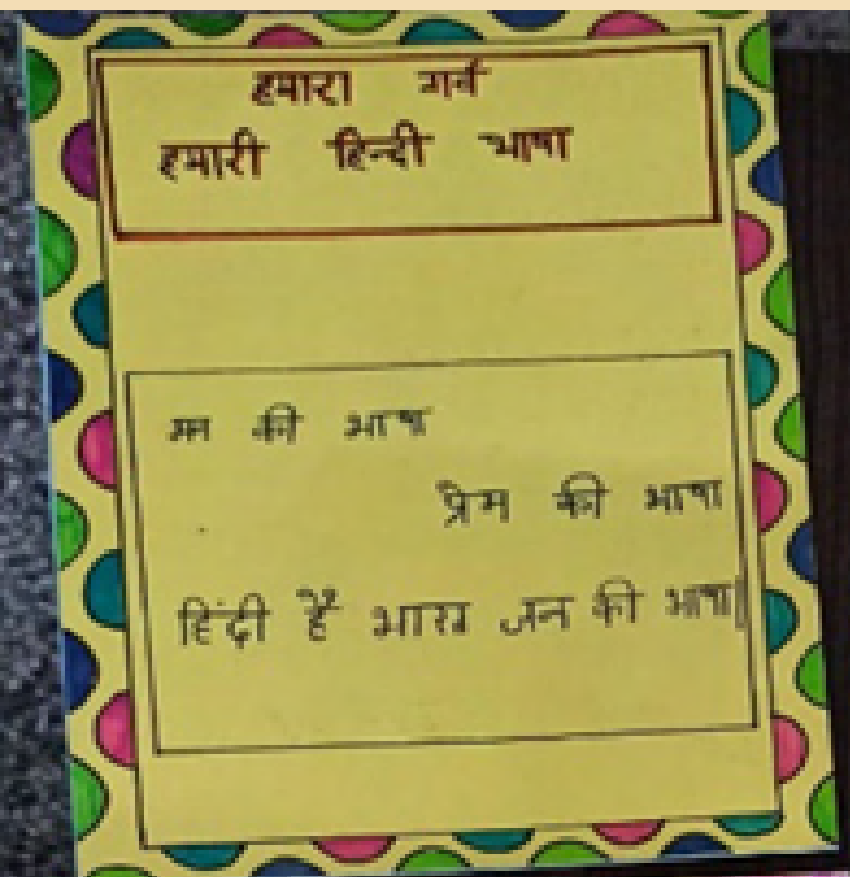 हमारा गर्व
हमारी हिन्दी भाषा
मन की भाषा
प्रेम की भाषा
हिंदी है भारत जन की भाषा|